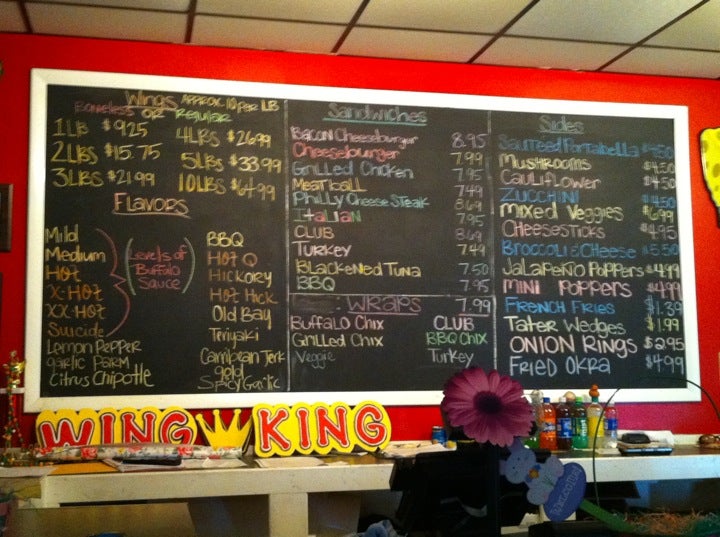 Wings Approx 10 per LB
Boneless or Regular
1 LB $9.25
2 LBS $15.75
3 LBS $21.99
4 LBS $26.99
5 LBS $33.99
10 LBS $64.99
Flavors
Mild
Medium
Hot
X-Hot
XX-Hot
Suicide
Levels of
Buffalo
Sauce
Lemon Pepper
garlic Parm
Citrus Chipotle
BBQ
Hot Q
Hickory
Hot Hick
Old Bay
Teriyaki
Carribean Jerk
gold
Spicy Garlic
Sandwiches
Bacon Cheeseburger 8.95
Cheeseburger 7.99
Grilled Chicken 7.95
Meatball 7.49
Philly Cheese Steak 8.69
Italian 7.95
CLUB 8.69
Turkey 7.49
Blackened Tuna 7.50
BBQ 7.95
Wraps 7.99
Buffalo Chix CLUB
Grilled Chix BBQ Chix
Veggie Turkey
Sides
Sauteed Portabella $4.50
Mushrooms $4.50
Cauliflower $4.50
Zucchini $4.50
Mixed Veggies $6.99
Cheesesticks $4.95
Broccoli & Cheese $5.50
Jalapeño Poppers $4.99
Mini Poppers $4.99
French Fries $1.39
Tater Wedges $1.99
Onion Rings $2.95
Fried Okra $4.99
WING KING